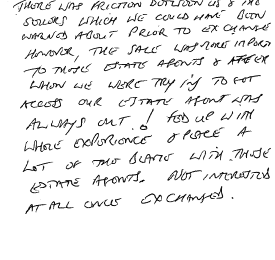 THERE WAS FRICTION BETWEEN US & THE
SELLERS WHICH WE COULD HAVE BEEN
WARNED ABOUT PRIOR TO EXCHANGE
HOWEVER, THE SALE WAS MORE IMPORT
TO THOSE ESTATE AGENTS & AFTER
WHEN WE WERE TRYING TO GET
ACCESS OUR ESTATE AGENT WAS
ALWAYS OUT! FED UP WITH
WHOLE EXPERIENCE & PLACE A
LOT OF THE BLAME WITH THOSE
ESTATE AGENTS. NOT INTERESTED
AT ALL ONCE EXCHANGED.